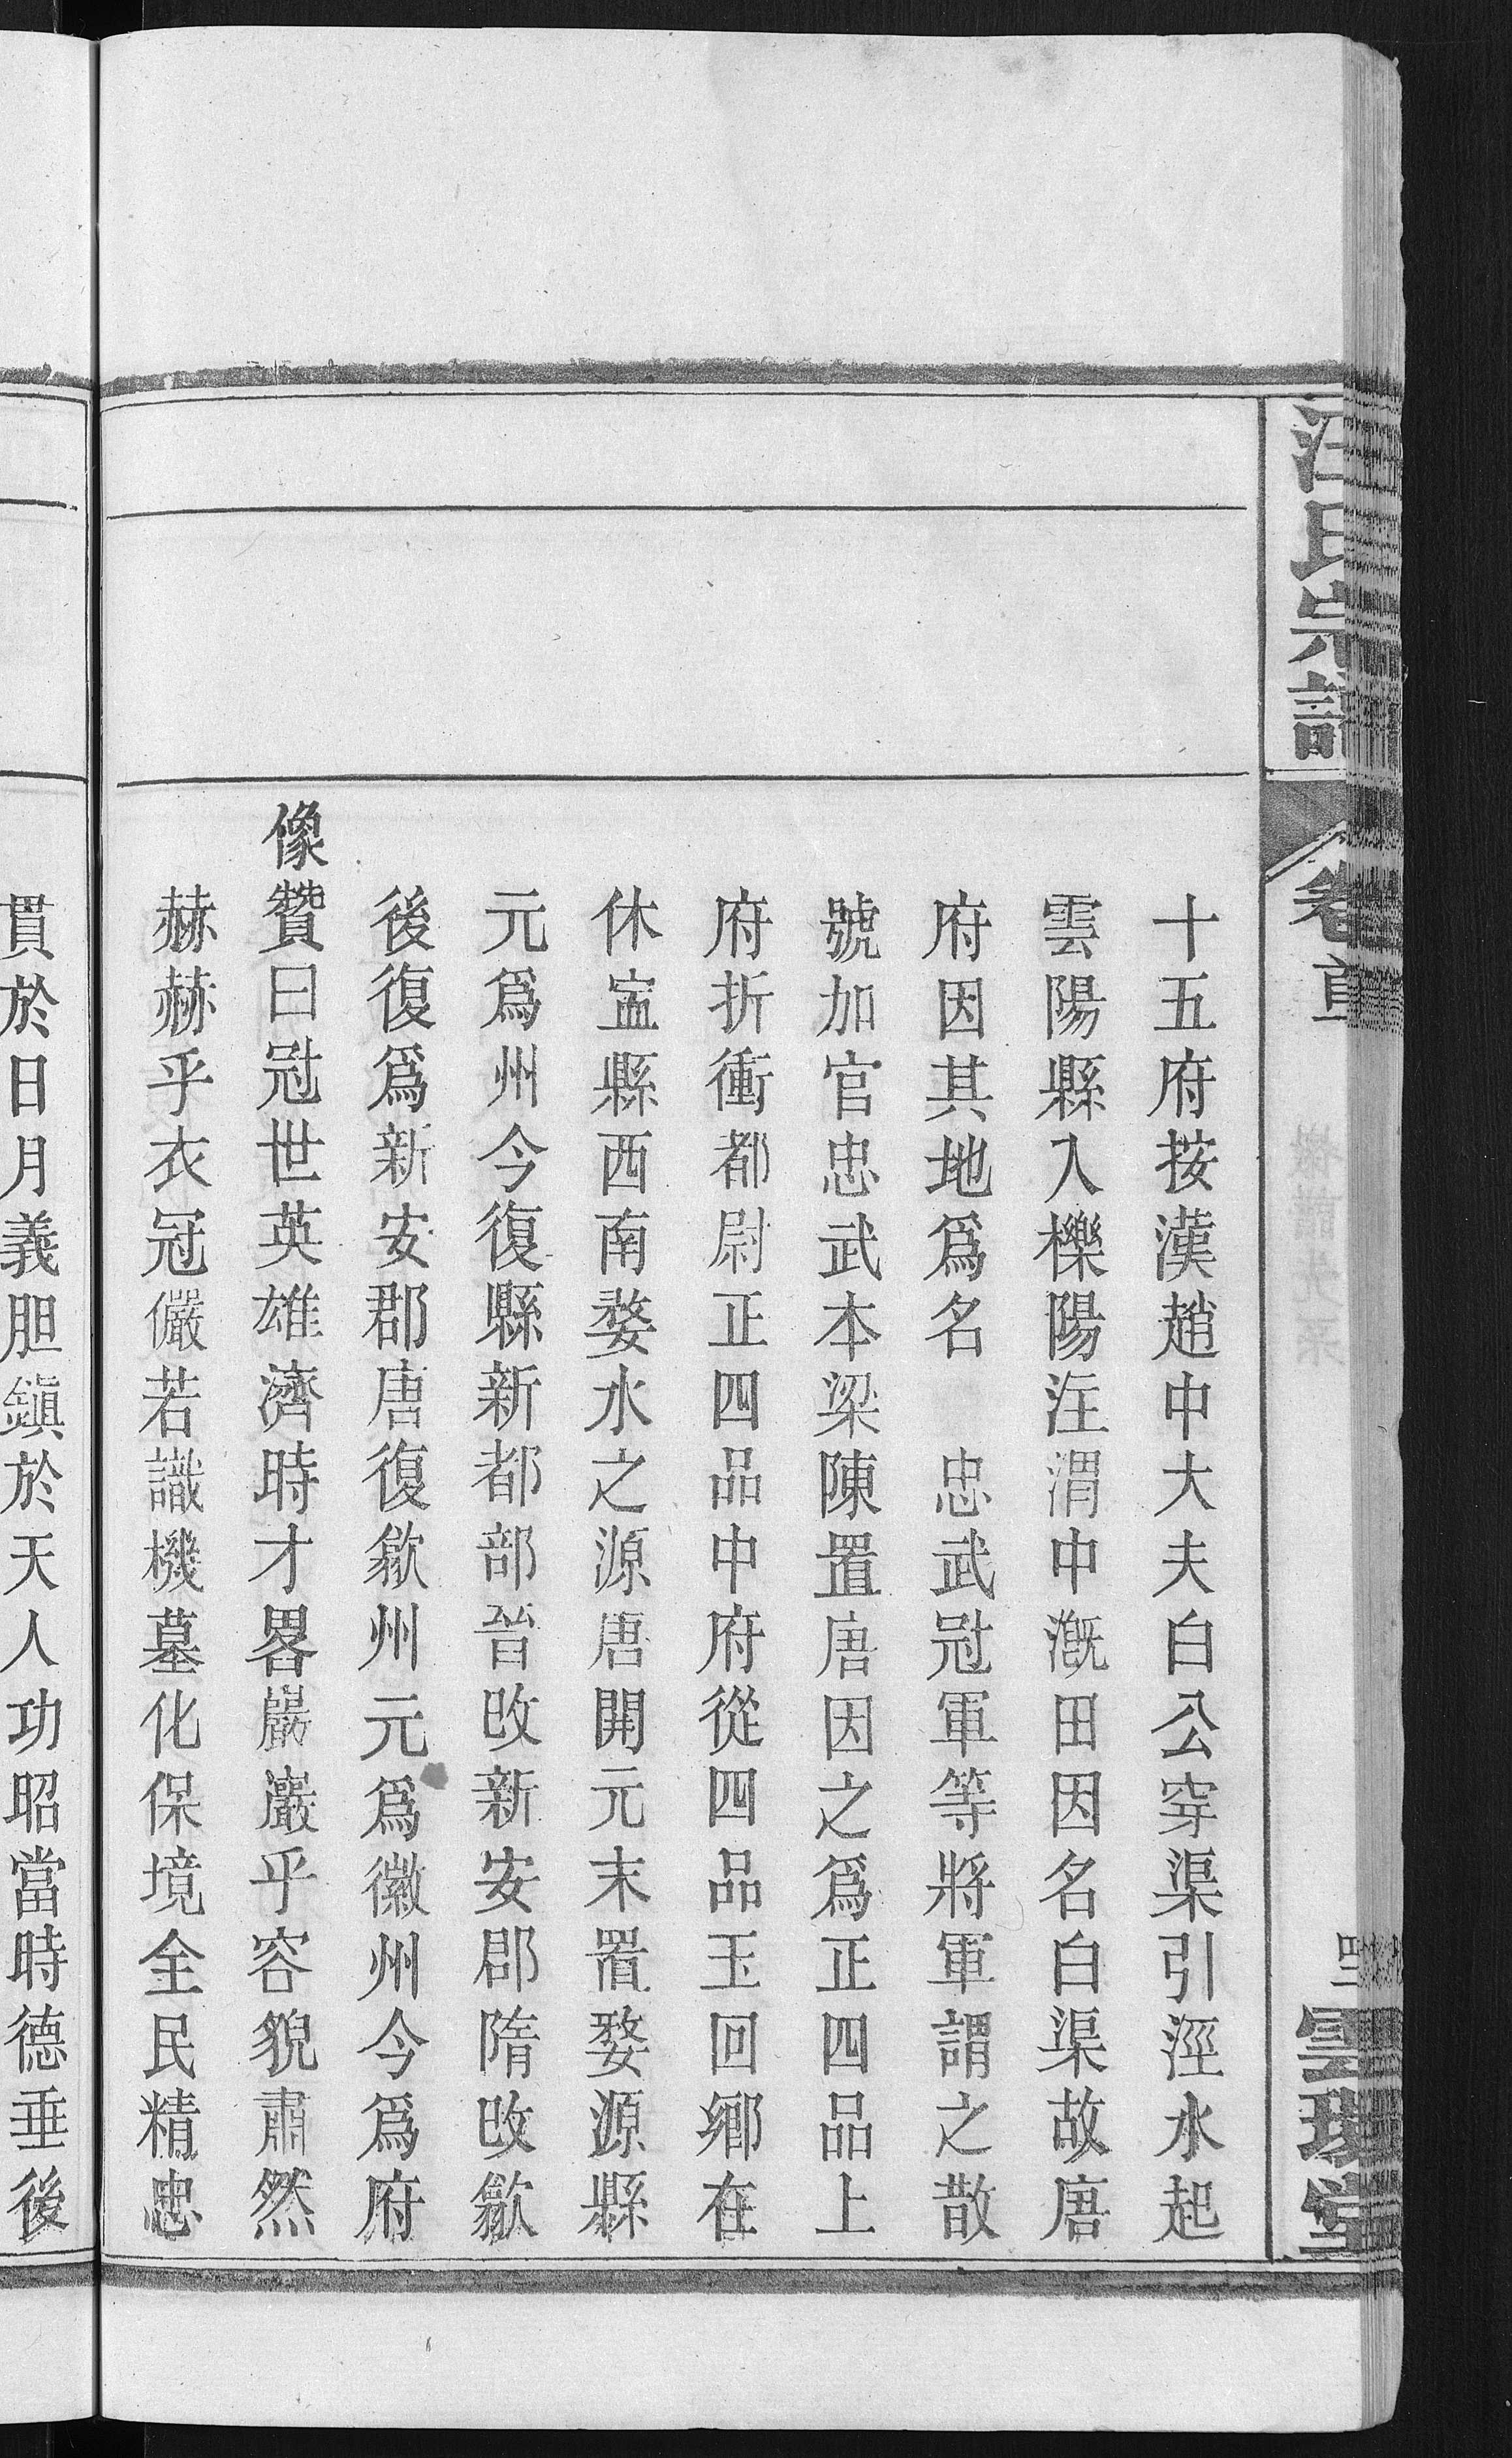 汪氏宗譜
卷首
雲瑞堂
十五府按漢趙中大夫白公穿渠引涇水起
雲陽縣入櫟陽注渭中漑田因名白渠故唐
府因其地爲名　忠武冠軍等將軍謂之散
號加官忠武本梁陳置唐因之爲正四品上
府折衝都尉正四品中府從四品玉回鄉在
休寍縣西南婺水之源唐開元末置婺源縣
元爲州今復縣新都部晉改新安郡隋改歙
後復爲新安郡唐復歙州元爲徽州今爲府
像贊曰冠世英雄濟時才畧巖巖乎容貌肅然
赫赫乎衣冠儼若識機墓化保境全民精忠
貫於日月義胆鎮於天人功昭當時德垂後